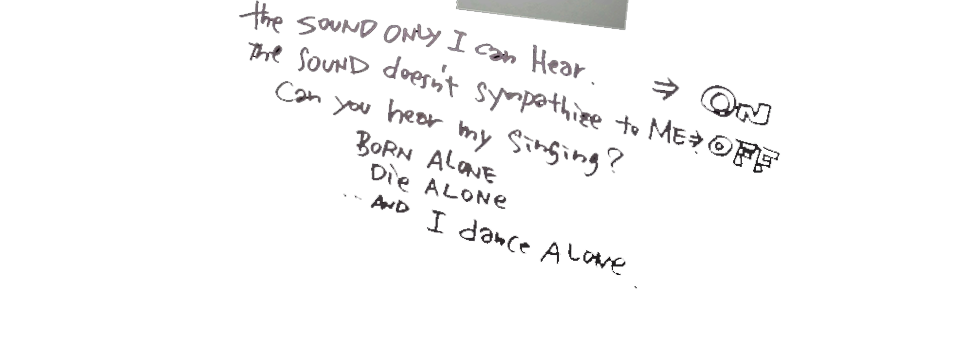 the SOUND ONLY I can Hear. ⇒ ON
The SOUND doesn't sympathize to ME ⇒ OFF
Can you hear my singing?
BORN ALONE
Die ALONe
.. AND I dance ALONe.